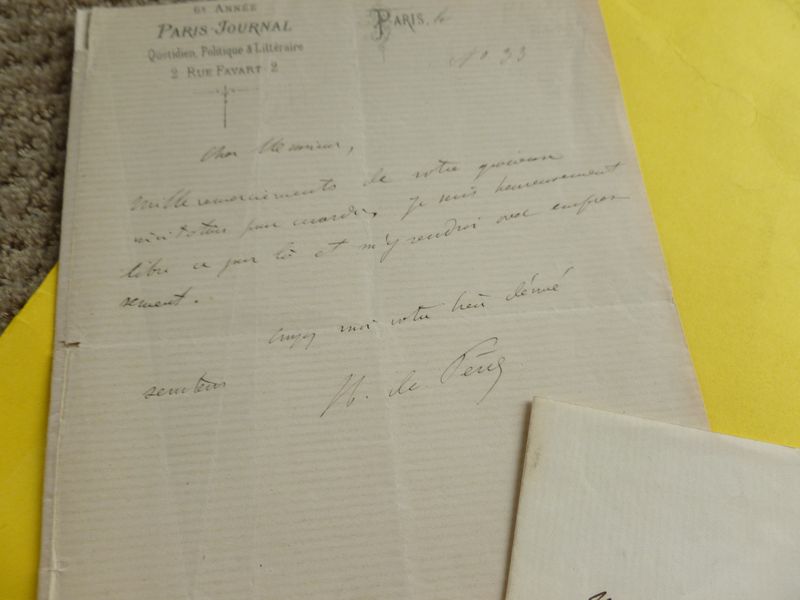 6e ANNÉE
PARIS-JOURNAL
Quotidien, Politique & Littéraire
2 RUE FAVART 2
PARIS, le
No 33
Cher Monsieur,
Mille remerciements de votre gracieuse
invitation pour mardi, je suis heureusement
libre ce jour là et m'y rendrai avec empres
sement.
Croyez moi votre bien dévoué
serviteur
H. de Pène